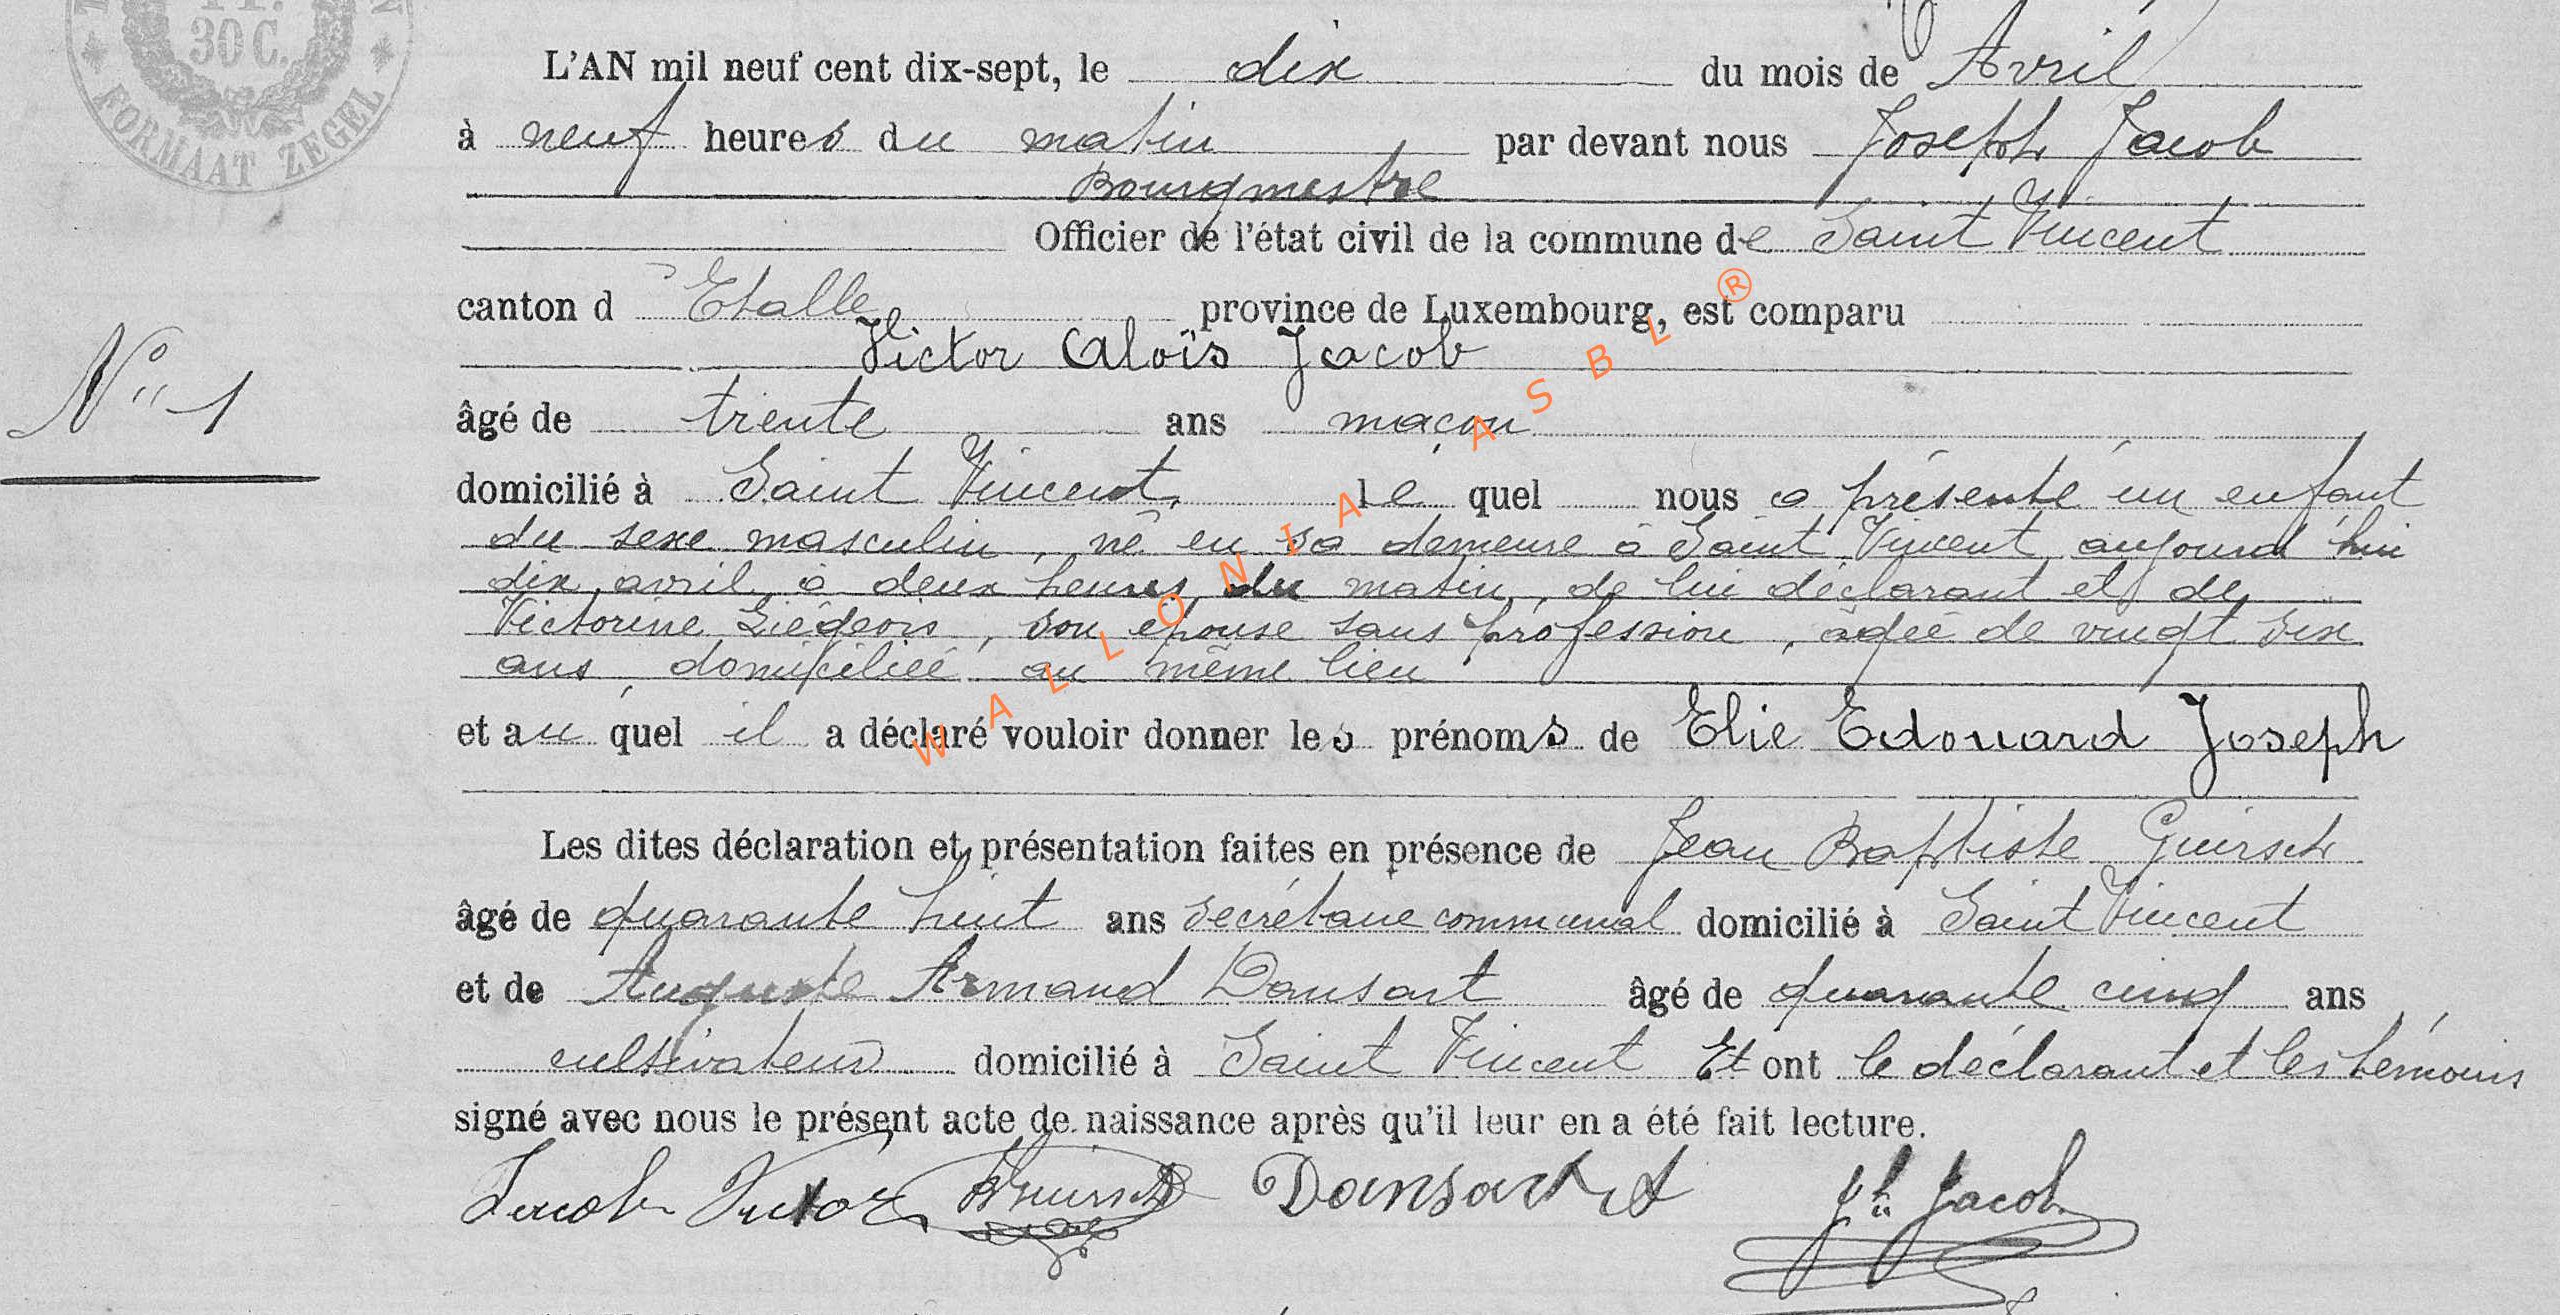 30 C.
FORMAAT ZEGEL
L'AN mil neuf cent dix-sept, le dix du mois de Avril
à neuf heures du matin par devant nous Joseph Jacob
Bourgmestre
Officier de l'état civil de la commune de Saint Vincent
canton d Etalle province de Luxembourg, est comparu
Victor Aloïs Jacob
N° 1
âgé de trente ans maçon
domicilié à Saint Vincent, le quel nous a présenté un enfant
du sexe masculin, né en sa demeure à Saint Vincent aujourd'hui
dix avril à deux heures du matin, de lui déclarant et de
Victorine Liégeois, son épouse sans profession, âgée de vingt six
ans, domiciliée au même lieu
et au quel il a déclaré vouloir donner les prénoms de Elie Edouard Joseph
Les dites déclaration et présentation faites en présence de Jean Baptiste Guirsch
âgé de quarante huit ans secrétaire communal domicilié à Saint Vincent
et de Auguste Armand Dansart âgé de quarante cinq ans
cultivateur domicilié à Saint Vincent Et ont le déclarant et les témoins
signé avec nous le présent acte de naissance après qu'il leur en a été fait lecture.
Jacob Victor Guirsch Dansart A Jh Jacob
WALLONIA ASBL ®